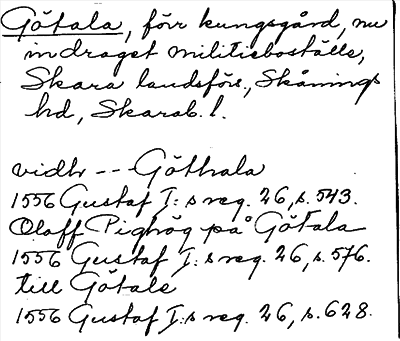 Götala, förr kungsgård, nu
indraget militieboställe,
Skara landsförs., Skånings
hd, Skarab. l.
vidh -- Göthala
1556 Gustaf I:s reg. 26, s. 543.
Oloff Pighög på Götala
1556 Gustaf I:s reg. 26, s. 576.
till Götale
1556 Gustaf I:s reg. 26, s. 628.